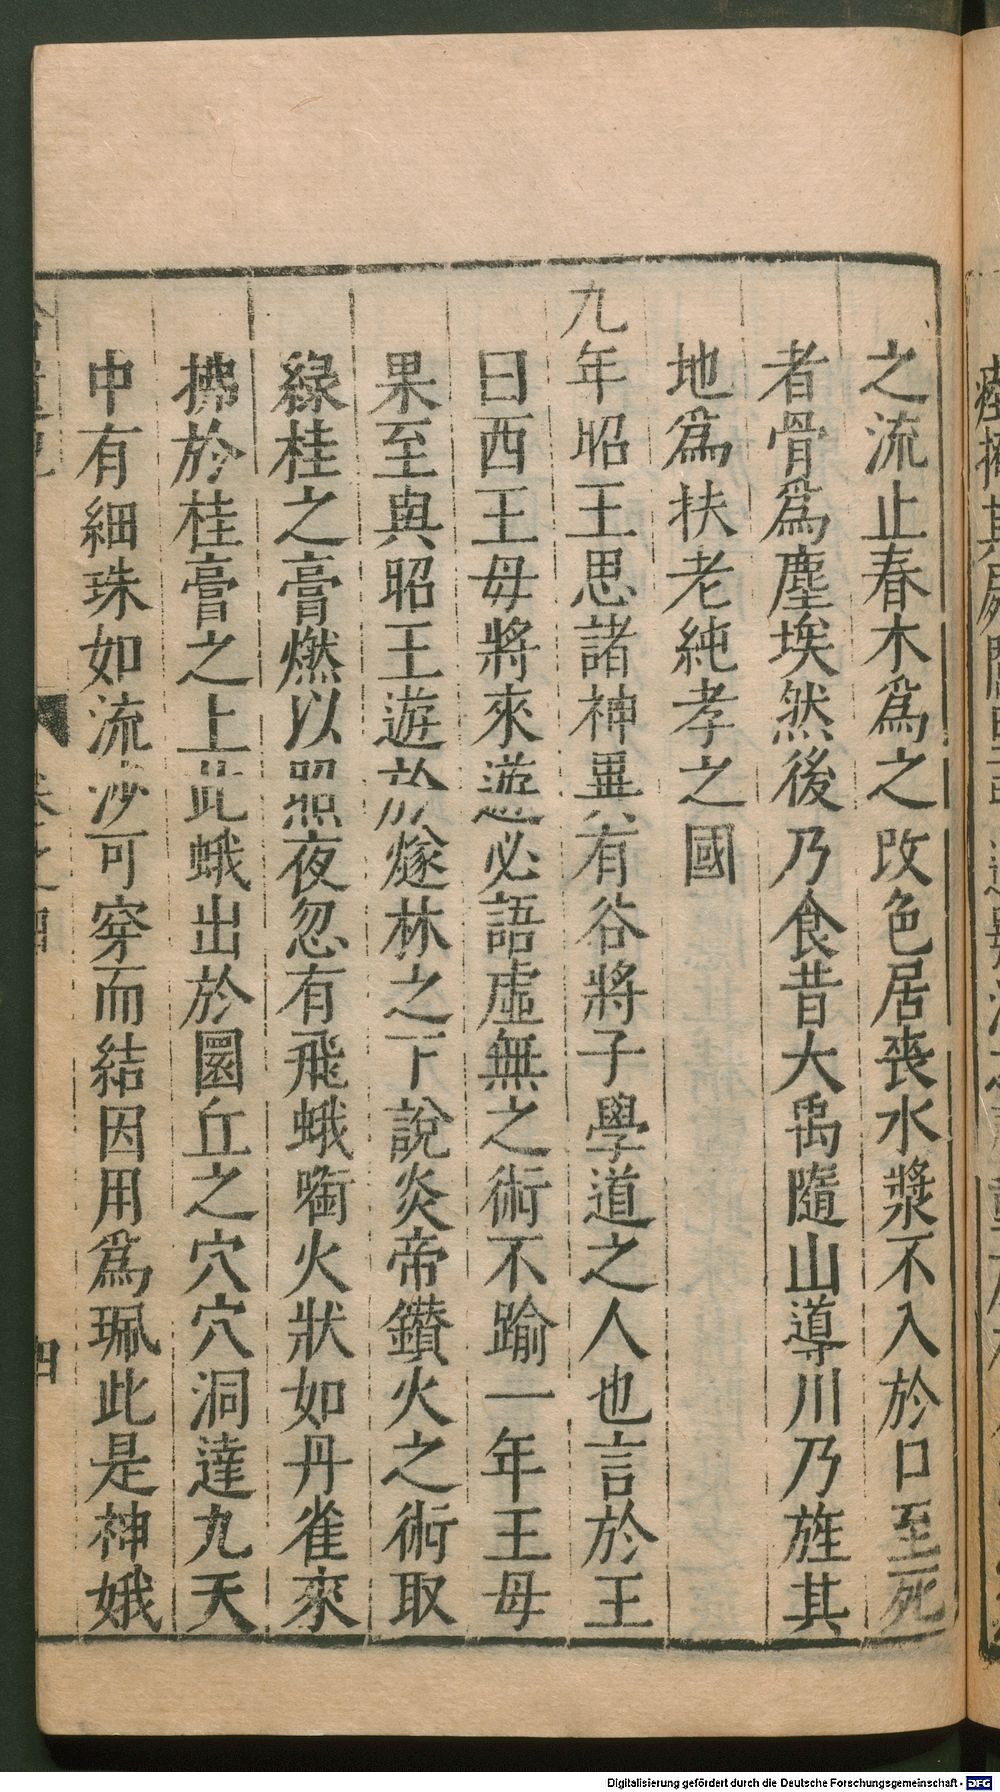 之流止春木爲之改色居喪水漿不入於口至死
者骨爲塵埃然後乃食昔大禹隨山導川乃旌其
地爲扶老純孝之國
九年昭王思諸神異有谷將子學道之人也言於王
曰西王母將來遊必語虛無之術不踰一年王母
果至與昭王遊於燧林之下說炎帝鑽火之術取
綠桂之膏燃以照夜忽有飛蛾㗸火狀如丹雀來
拂於桂膏之上此蛾出於圜丘之穴穴洞達九天
中有細珠如流沙可穿而結因用爲珮此是神蛾
卷之四
四
Digitalisierung gefördert durch die Deutsche Forschungsgemeinschaft - DFG